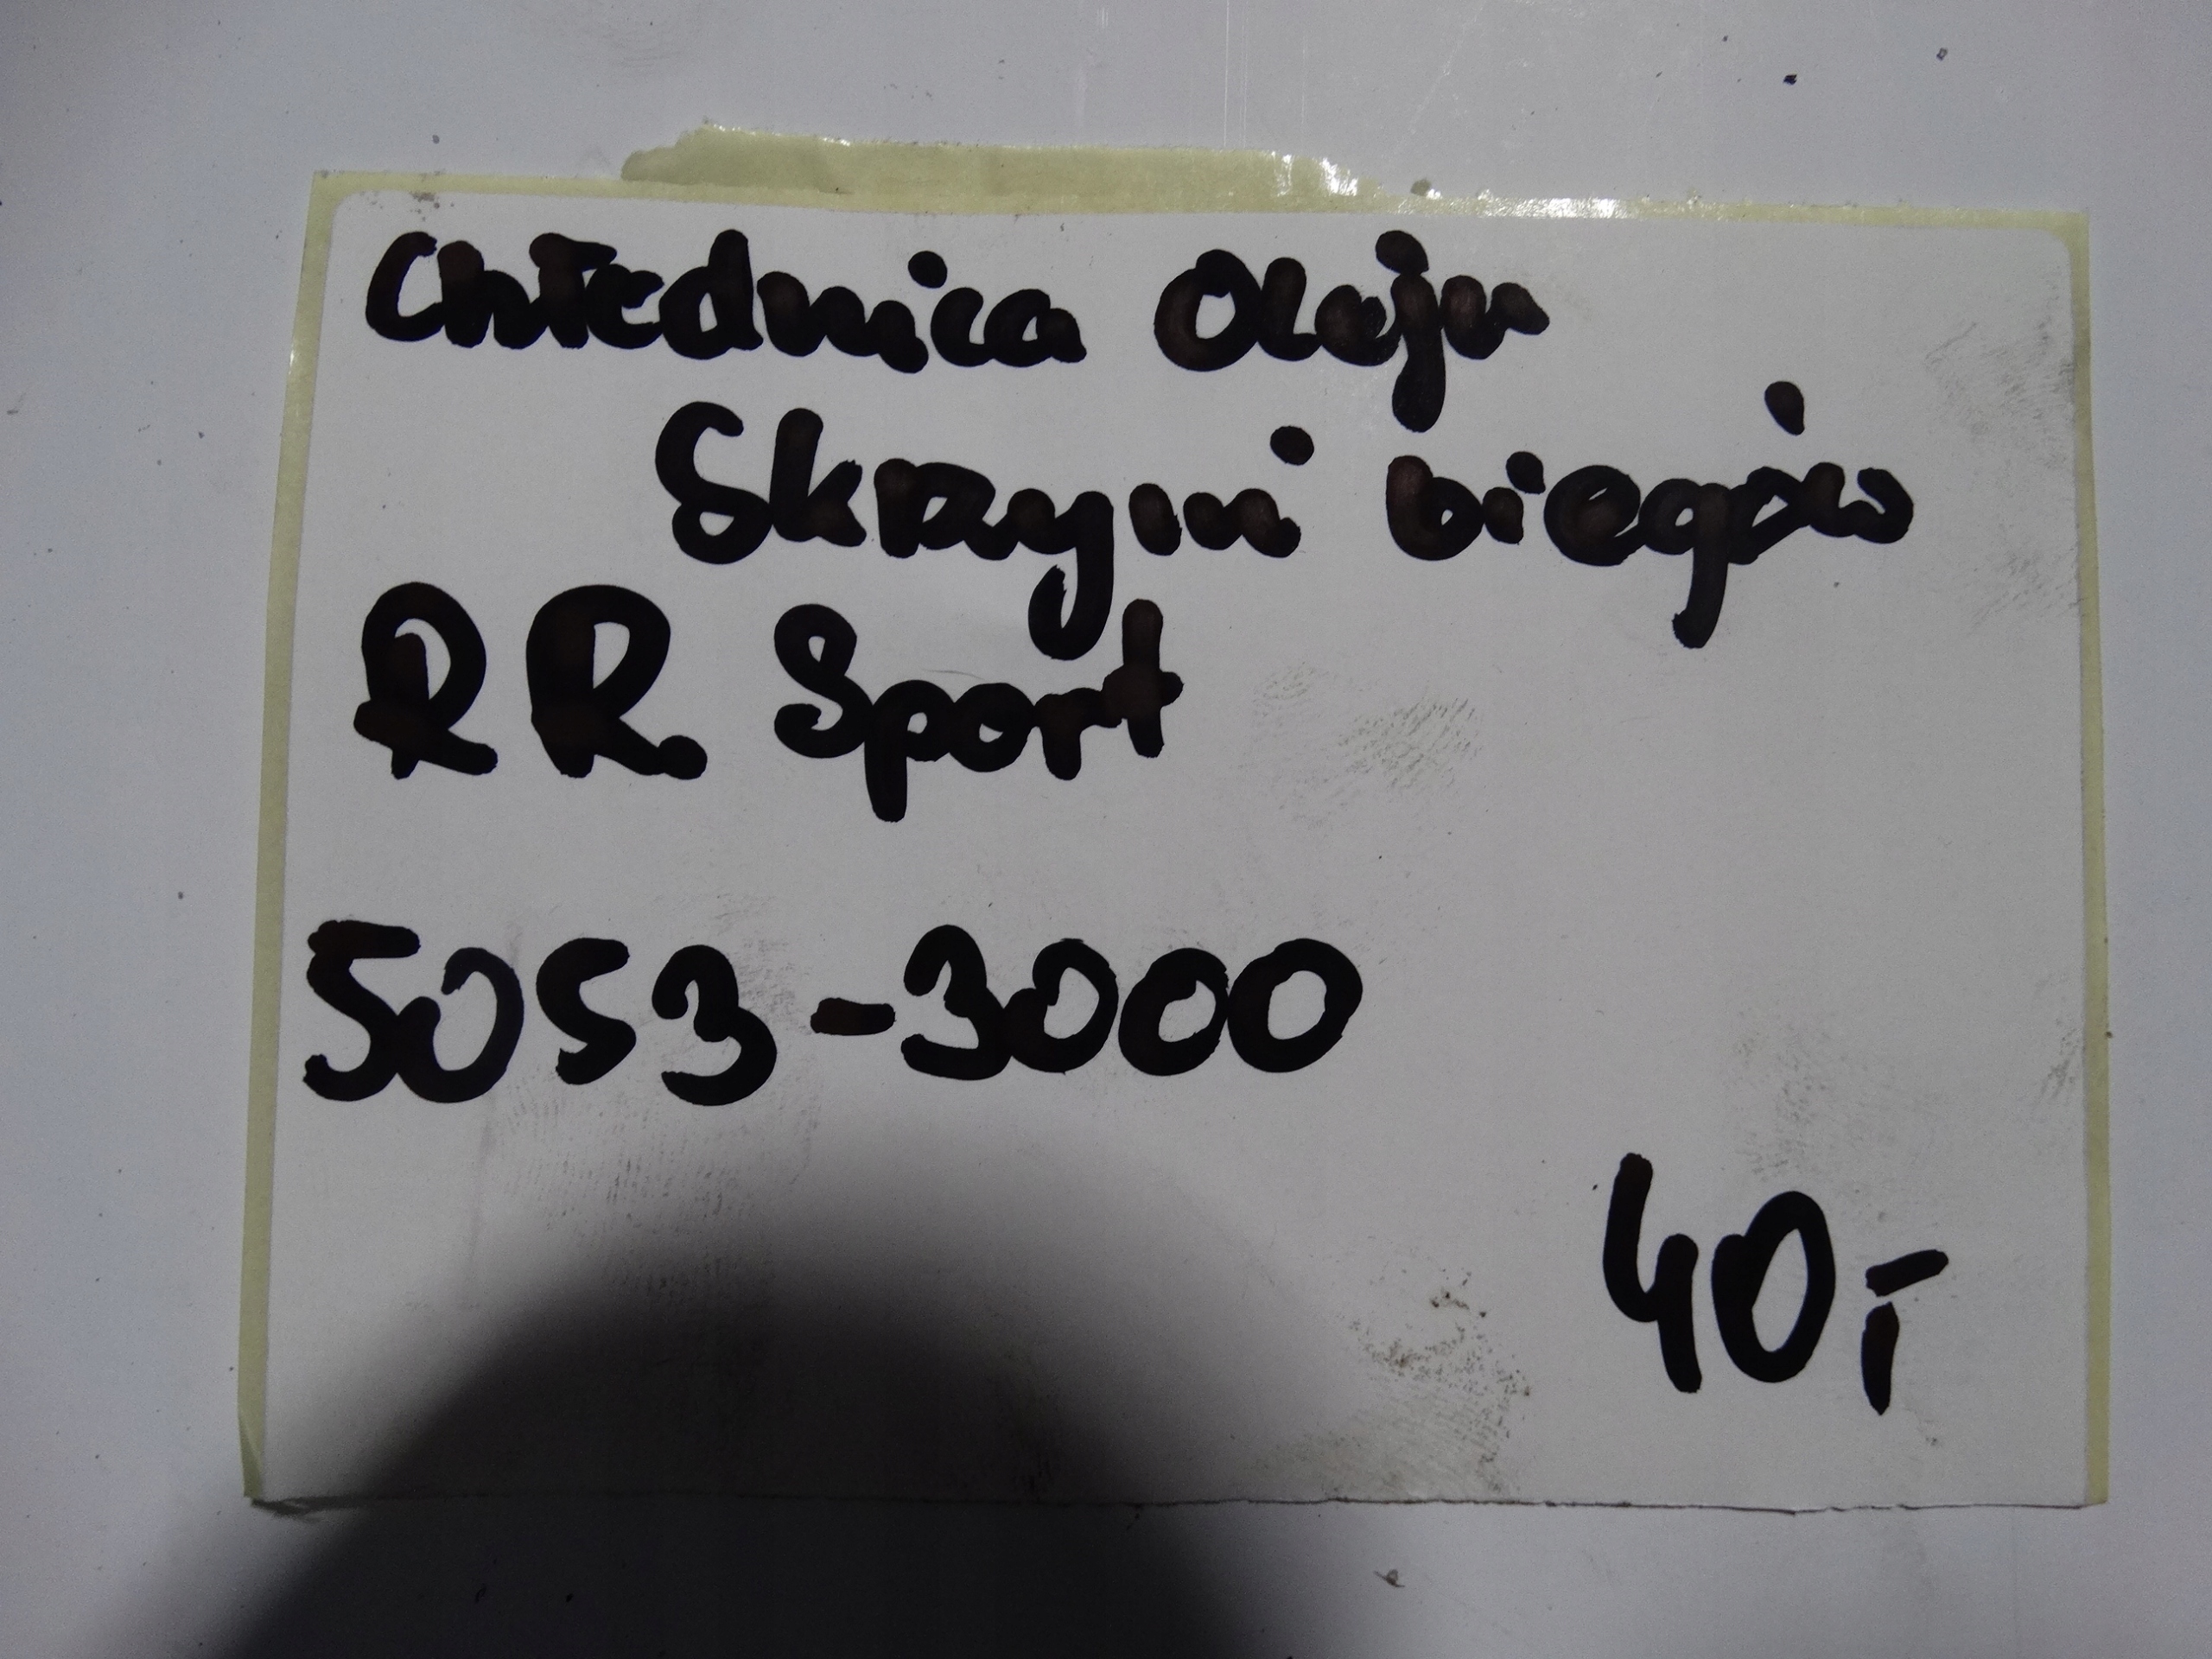 Chłodnica Oleju
Skrzyni biegów
RR Sport
5053-3000
40,-